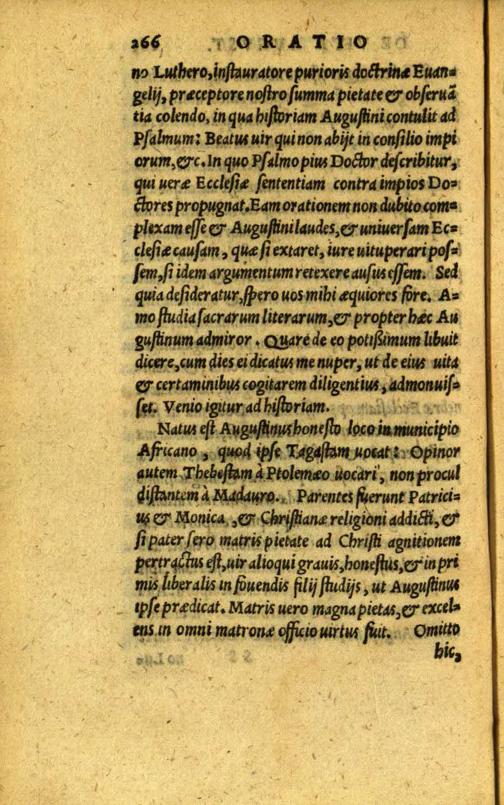 266 ORATIO
no Luthero, instauratore purioris doctrinæ Euan=
gelij, præceptore nostro summa pietate & obseruã
tia colendo, in qua historiam Augustini contulit ad
Psalmum: Beatus uir qui non abijt in consilio impi
orum, &c. In quo Psalmo pius Doctor describitur,
qui ueræ Ecclesiæ sententiam contra impios Do=
ctores propugnat. Eam orationem non dubito com=
plexam esse & Augustini laudes, & uniuersam Ec=
clesiæ causam, quæ si extaret, iure uituperari pos=
sem, si idem argumentum retexere ausus essem. Sed
quia desideratur, spero uos mihi æquiores fore. A=
mo studia sacrarum literarum, & propter hæc Au
gustinum admiror. Quare de eo potißimum libuit
dicere, cum dies ei dicatus me nuper, ut de eius uita
& certaminibus cogitarem diligentius, admonuis=
set. Venio igitur ad historiam.
Natus est Augustinus honesto loco in municipio
Africano, quod ipse Tagastam uocat: Opinor
autem Thebestam à Ptolemæo uocari, non procul
distantem à Madauro. Parentes fuerunt Patrici=
us & Monica, & Christianæ religioni addicti, &
si pater sero matris pietate ad Christi agnitionem
pertractus est, uir alioqui grauis, honestus, & in pri
mis liberalis in fouendis filij studijs, ut Augustinus
ipse prædicat. Matris uero magna pietas, & excel=
ens in omni matronæ officio uirtus fuit. Omitto
hic,